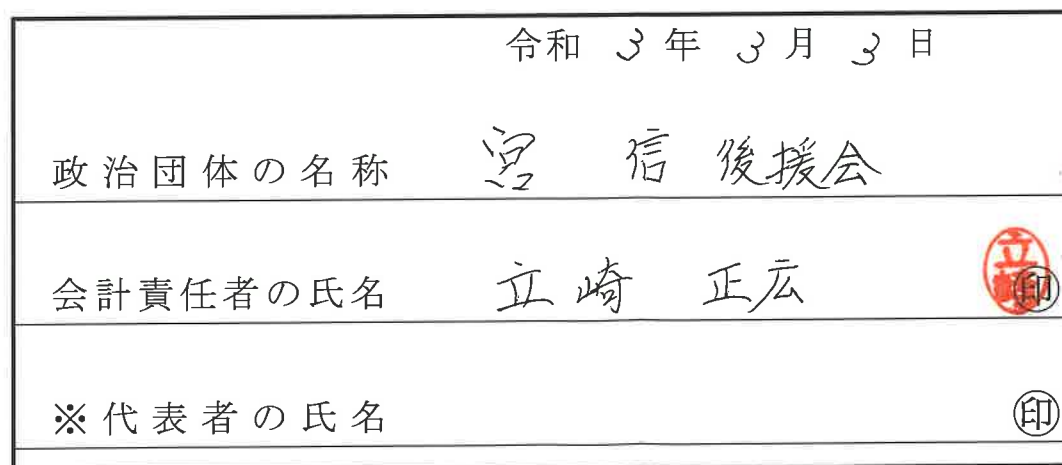 令和 3 年 3 月 3 日
政治団体の名称 宮 信 後援会
会計責任者の氏名 立崎 正広 ㊞
※代表者の氏名 ㊞